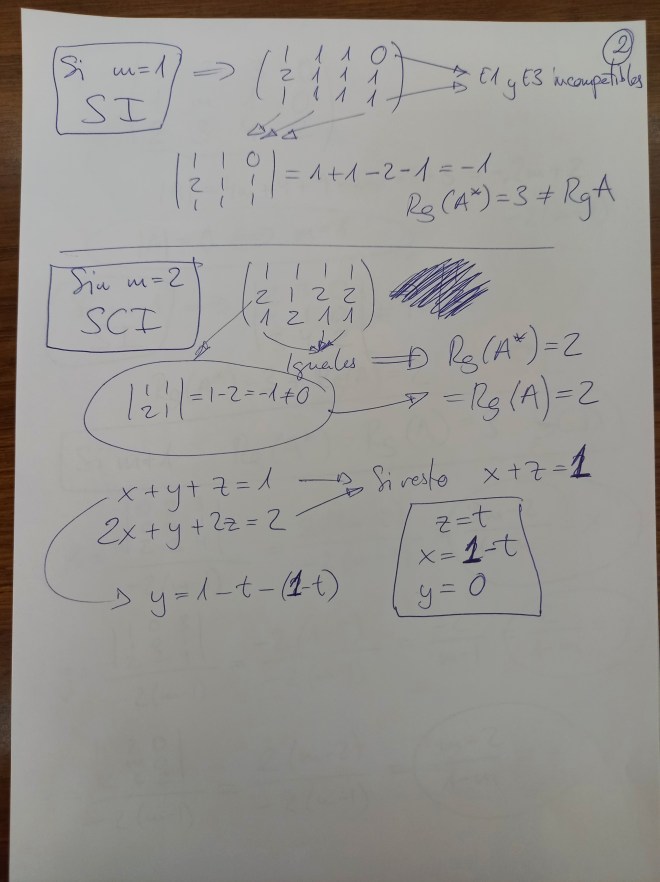 2
Si m=1 ⇒ ( 1 1 1 0
SI 2 1 1 1
1 1 1 1 ) → E1 y E3 incompatibles
| 1 1 0
2 1 1
1 1 1 | = 1+1-2-1 = -1
Rg(A*)=3 ≠ RgA
Sin m=2
SCI
( 1 1 1 1
2 1 2 2
1 2 1 1 )
Iguales ⇒ Rg(A*)=2
| 1 1
2 1 | = 1-2=-1≠0 → =Rg(A)=2
x+y+z=1 → Si resto x+z=1
2x+y+2z=2
z=t
x=1-t
y=0
→ y=1-t-(1-t)